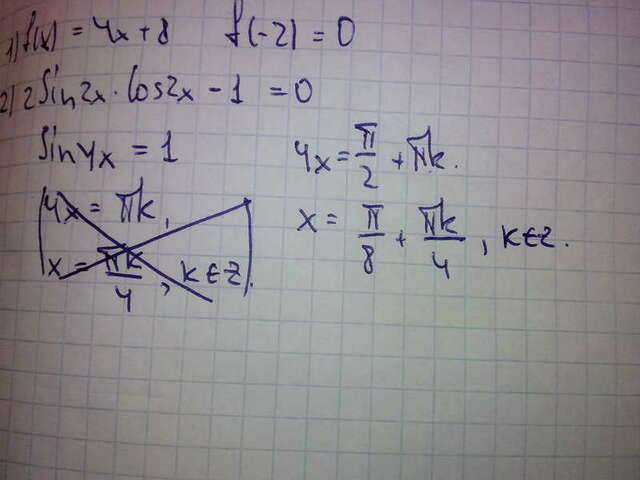 1) f(x) = 4x + 8 f(-2) = 0
2) 2 Sin2x · Cos2x - 1 = 0
Sin4x = 1
4x = πk,
x = πk/4, k∈Z.
4x = π/2 + πk.
x = π/8 + πk/4, k∈Z.